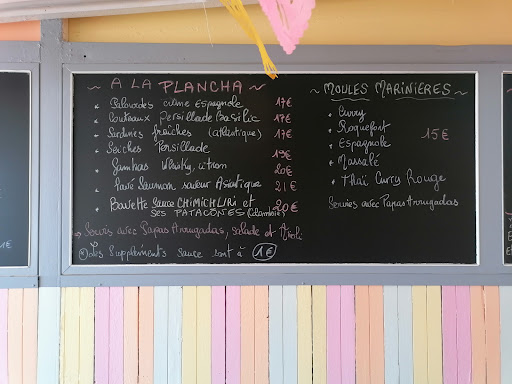 ~ A LA PLANCHA ~
* Palourdes crème Espagnole 17€
* Couteaux Persillade Basilic 17€
* Sardines fraîches (atlantique) 17€
* Seiches Persillade 19€
* Gambas Whisky, citron 20€
* Pavé Saumon saveur Asiatique 21€
* Bavette Sauce CHIMICHURI et 20€
SES PATACONES (Colombie)
Servies avec Papas Arrugadas, salade et Aïoli
* Les Suppléments sauce sont à 1€
~ MOULES MARINIERES ~
* Curry
* Roquefort
* Espagnole 15€
* Massalé
* Thaï Curry Rouge
Servies avec Papas Arrugadas
1€